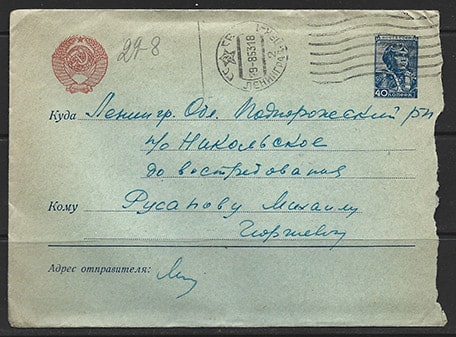 29-8
ЛЕНИНГРАД
40
КОПЕЕК
Куда Ленингр. Обл. Подпорожский р-н
п/о Никольское
до востребования
Кому Русанову Михаилу
Георгиевич
Адрес отправителя: